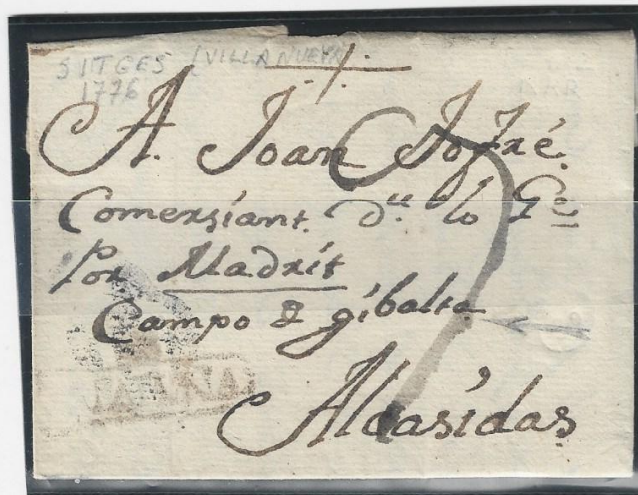 SITGES (VILLANUEVA)
1776
A. Joan Jofré.
Comersiant. d.n lo Ge
Por Madrit
Campo d gibalta
Alcasidas